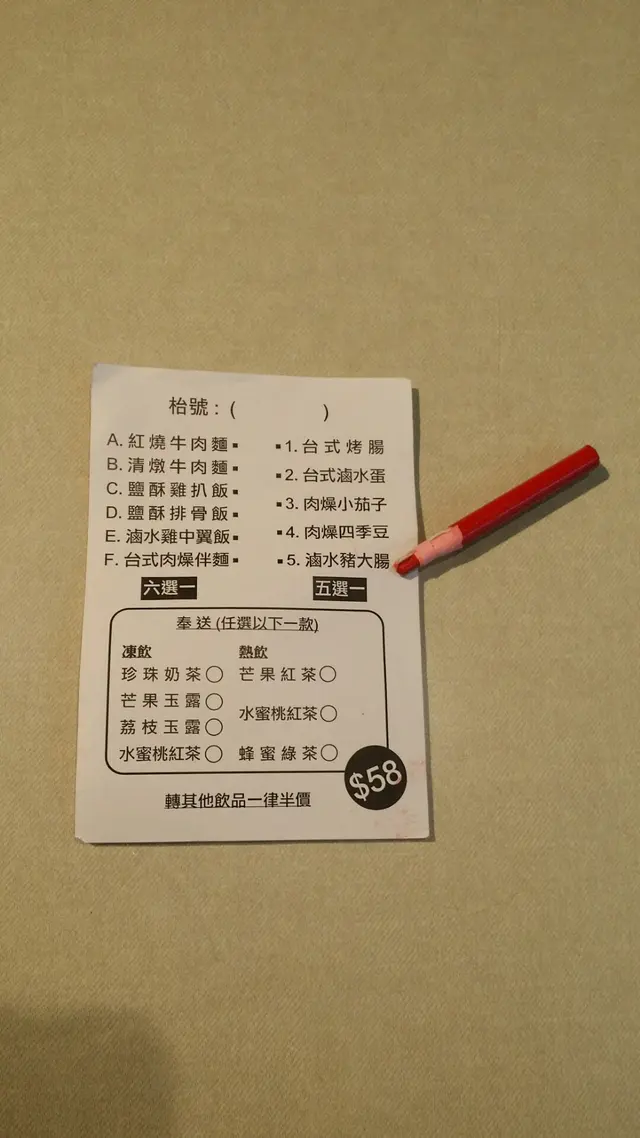 枱號 : (                )
A. 紅燒牛肉麵▪ ▪1. 台式烤腸
B. 清燉牛肉麵▪ ▪2. 台式滷水蛋
C. 鹽酥雞扒飯▪ ▪3. 肉燥小茄子
D. 鹽酥排骨飯▪ ▪4. 肉燥四季豆
E. 滷水雞中翼飯▪ ▪5. 滷水豬大腸
F. 台式肉燥伴麵▪
六選一 五選一
奉送 (任選以下一款)
凍飲 熱飲
珍珠奶茶○ 芒果紅茶○
芒果玉露○ 水蜜桃紅茶○
荔枝玉露○
水蜜桃紅茶○ 蜂蜜綠茶○
$58
轉其他飲品一律半價